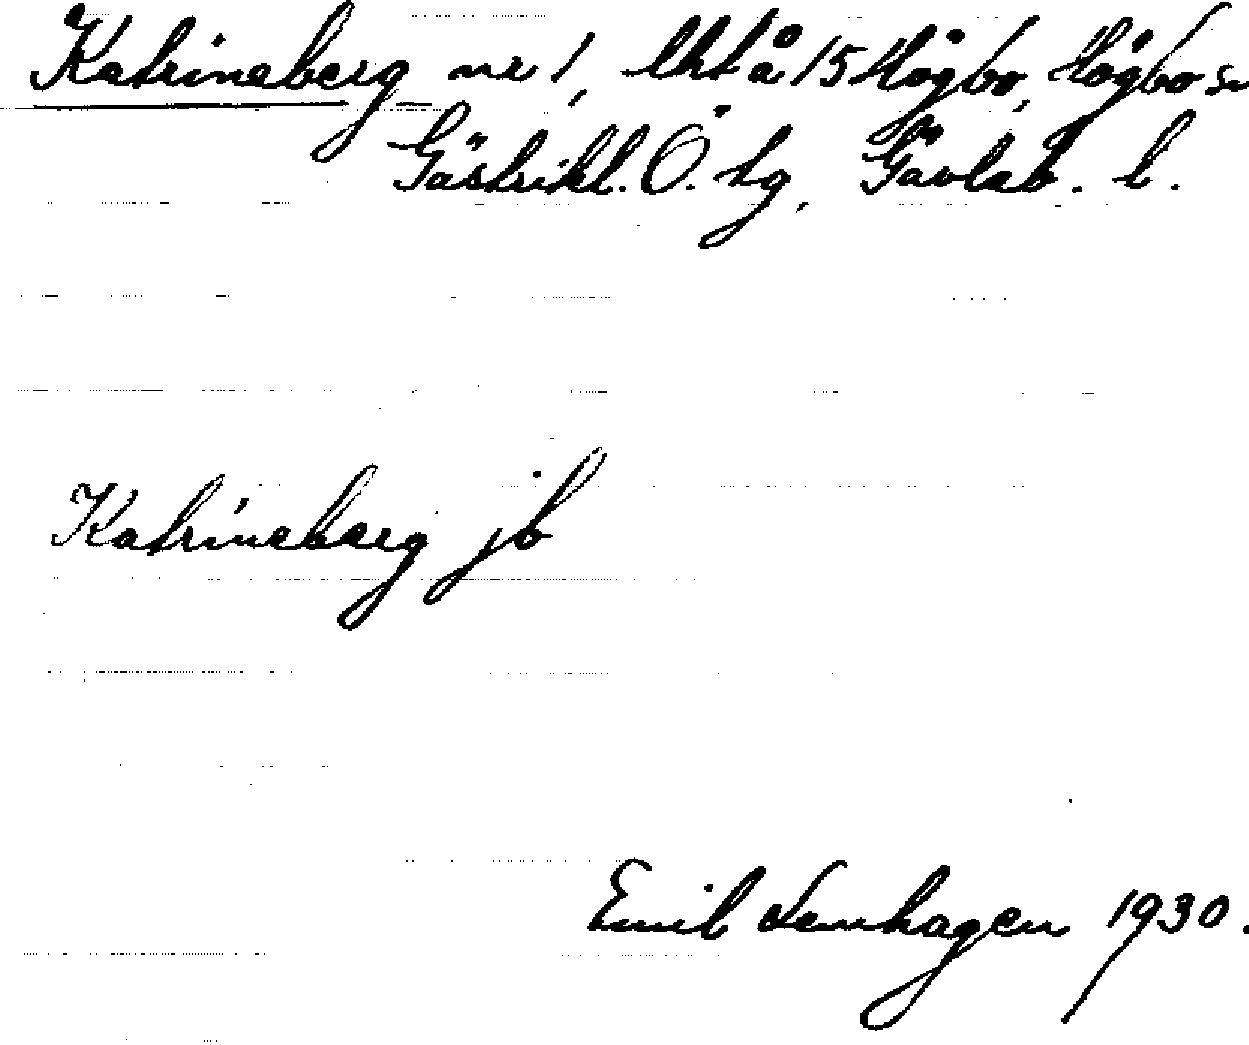 Katrineberg nr 1, lht å 15 Högbo, Högbo sn
Gästrikl. Ö. tg, Gävleb. l.
Katrineberg jb
Emil Lenhagen 1930.